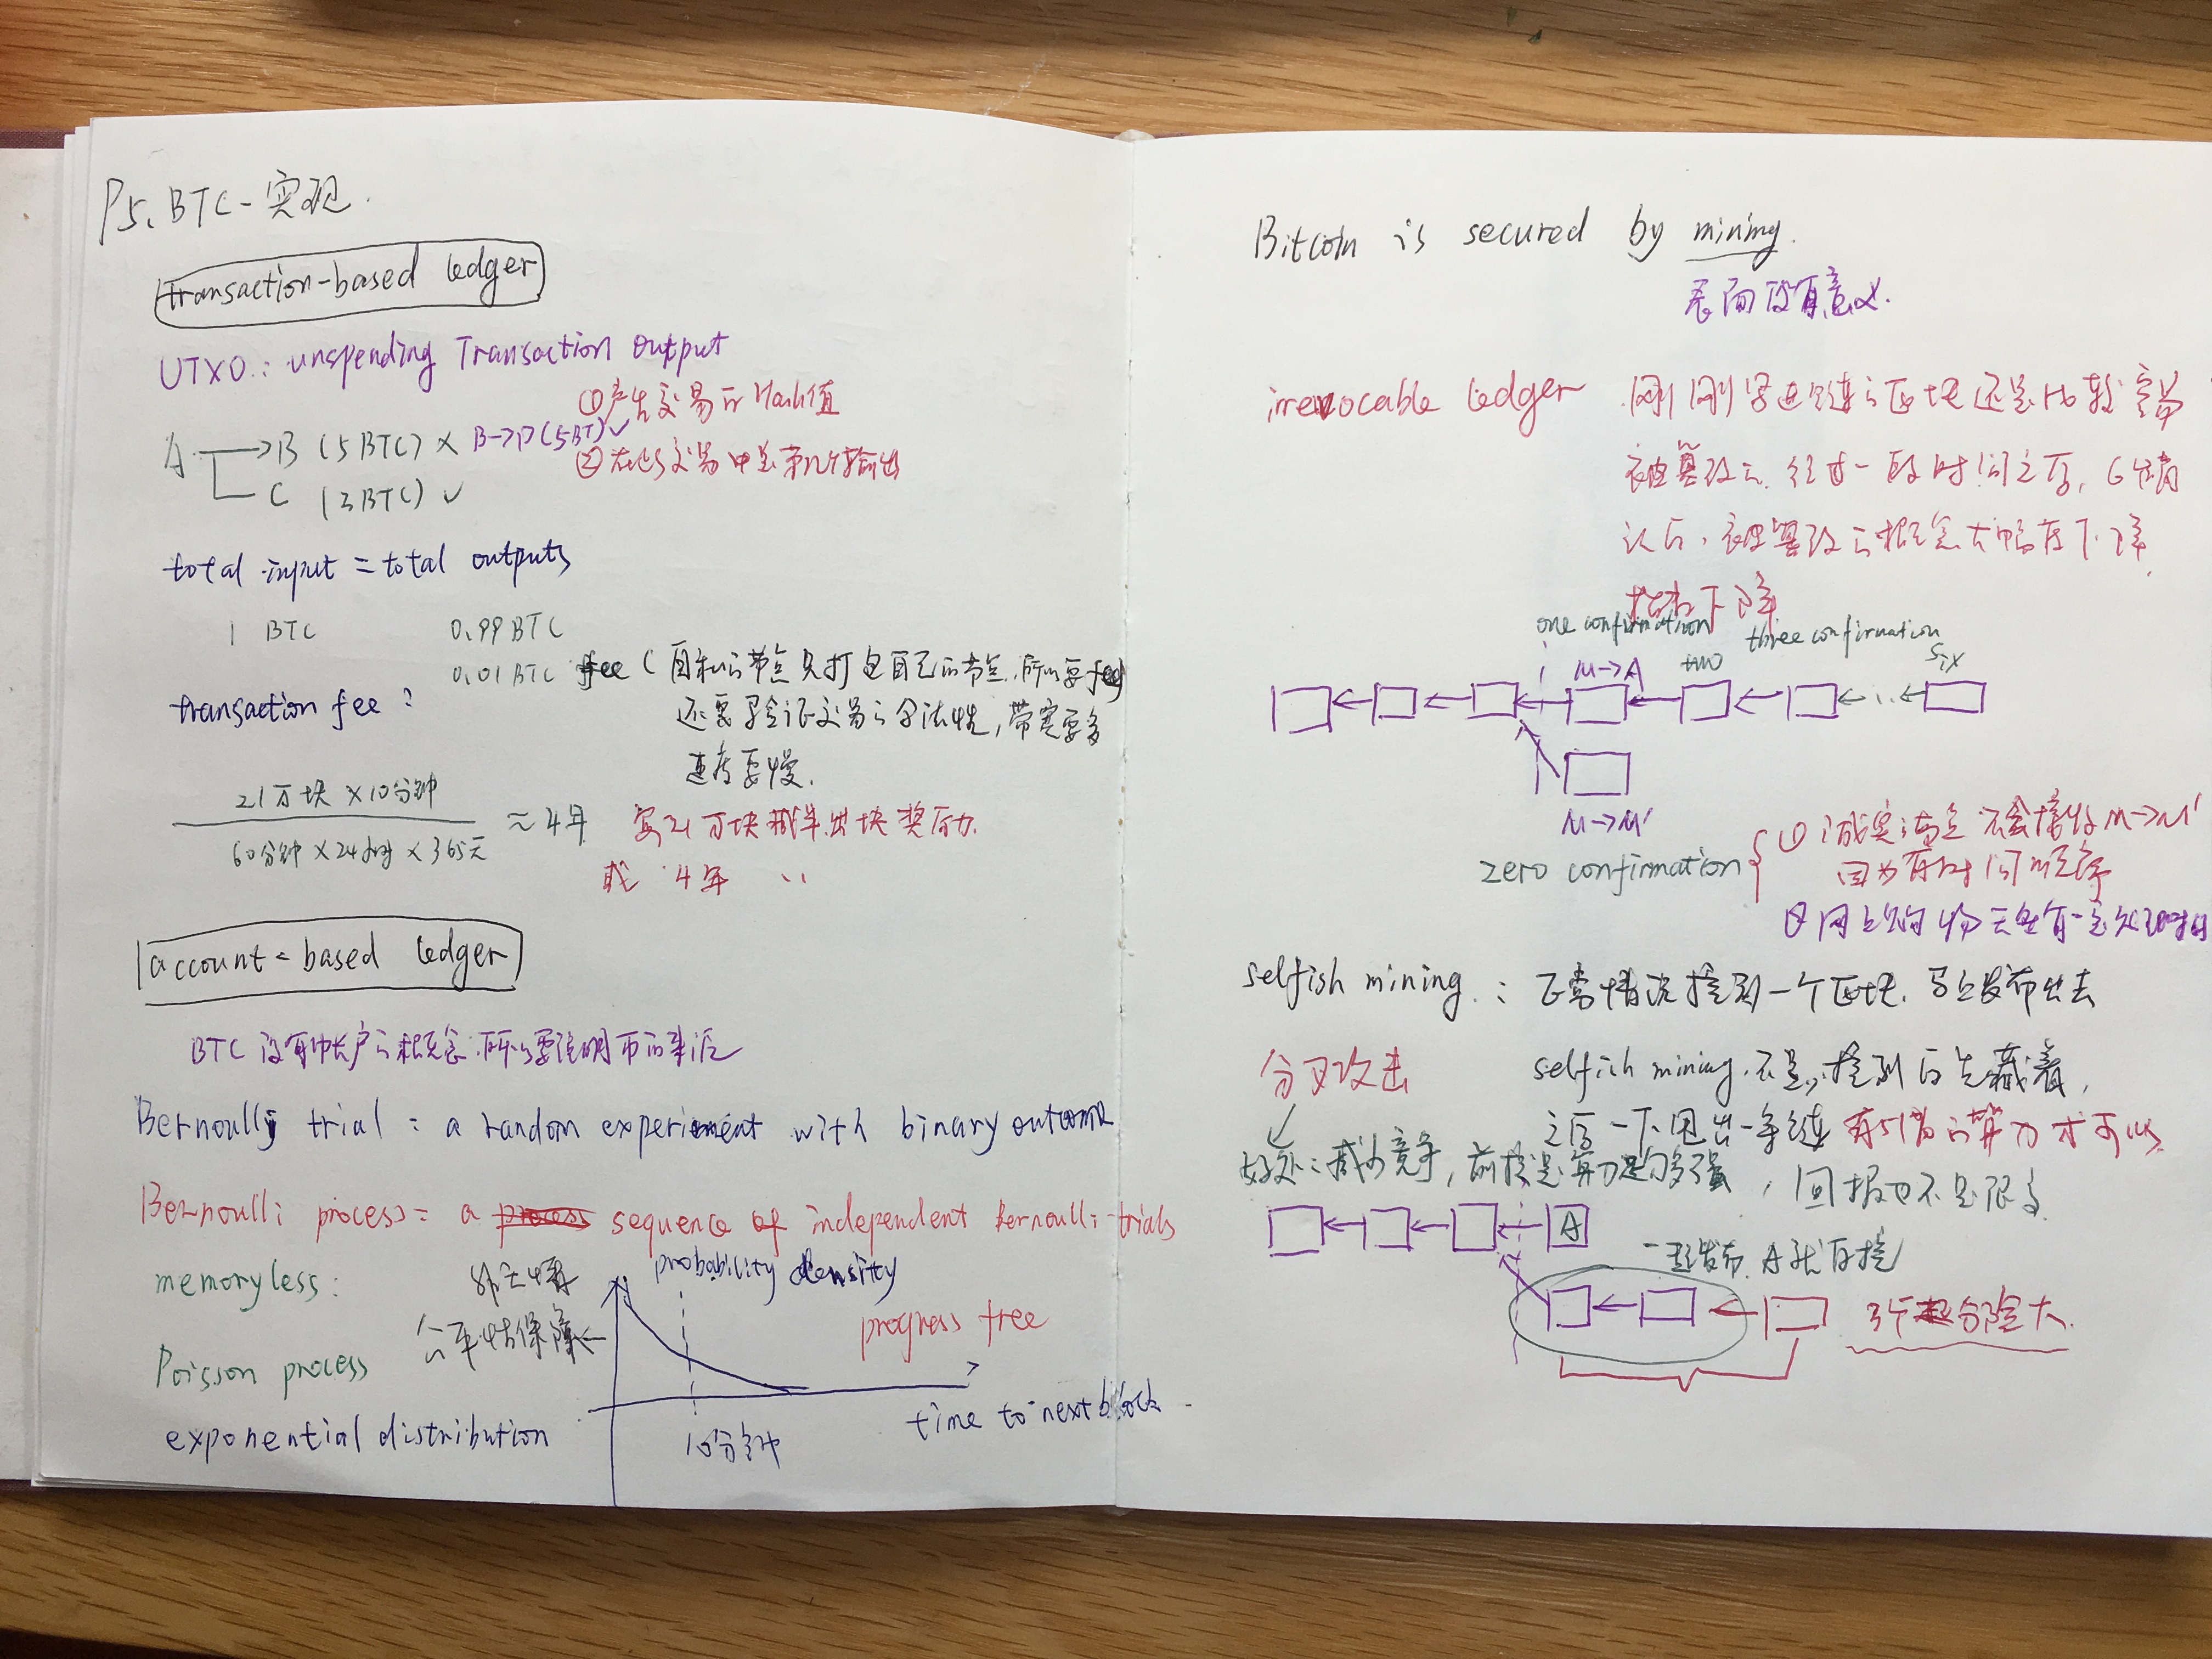 P5、BTC-实现.
transaction-based ledger
UTXO: unspending Transaction output
①产生交易的Hash值
A → B (5BTC) × B→D(5BT)✓
②在此交易中是第几个输出
C (3BTC) ✓
total input = total outputs
1 BTC 0.99BTC
0.01BTC fee (自私的节点只打包自己的节点.所以要fee)
transaction fee: 还要验证交易的合法性,带宽要多
速度要慢.
21万块×10分钟
60分钟×24小时×365天
≈4年 每21万块减半出块奖励.
或 4年 ''
account-based ledger
BTC没有帐户的概念.所以要说明币的来源
Bernoulli trial: a random experiment with binary outcome
Bernoulli process: a process sequence of independent Bernoulli trials
memoryless: 无 probability density
公平性保障← progress free
Poisson process
exponential distribution
10分钟 time to next block.
Bitcoin is secured by mining.
表面没有意义.
irrevocable ledger 刚刚写进区块链的区块还是比较容易
被篡改的.经过一段时间之后,6个确
认后,被篡改的概率大幅度下降
指数下降
one confirmation three confirmation
M→A two six
M→M'
zero confirmation ①诚实节点不会接收M→M'
因为有时间顺序
②网上购物天生有一定处理时间
selfish mining: 正常情况挖到一个区块.马上发布出去
分叉攻击 selfish mining.不是,挖到后先藏着,
之后一下甩出一条链 有51%的算力才可以
好处:减少竞争,前提是算力足够强,回报也不是很多
A
一起发布.A就白挖
3个风险大.